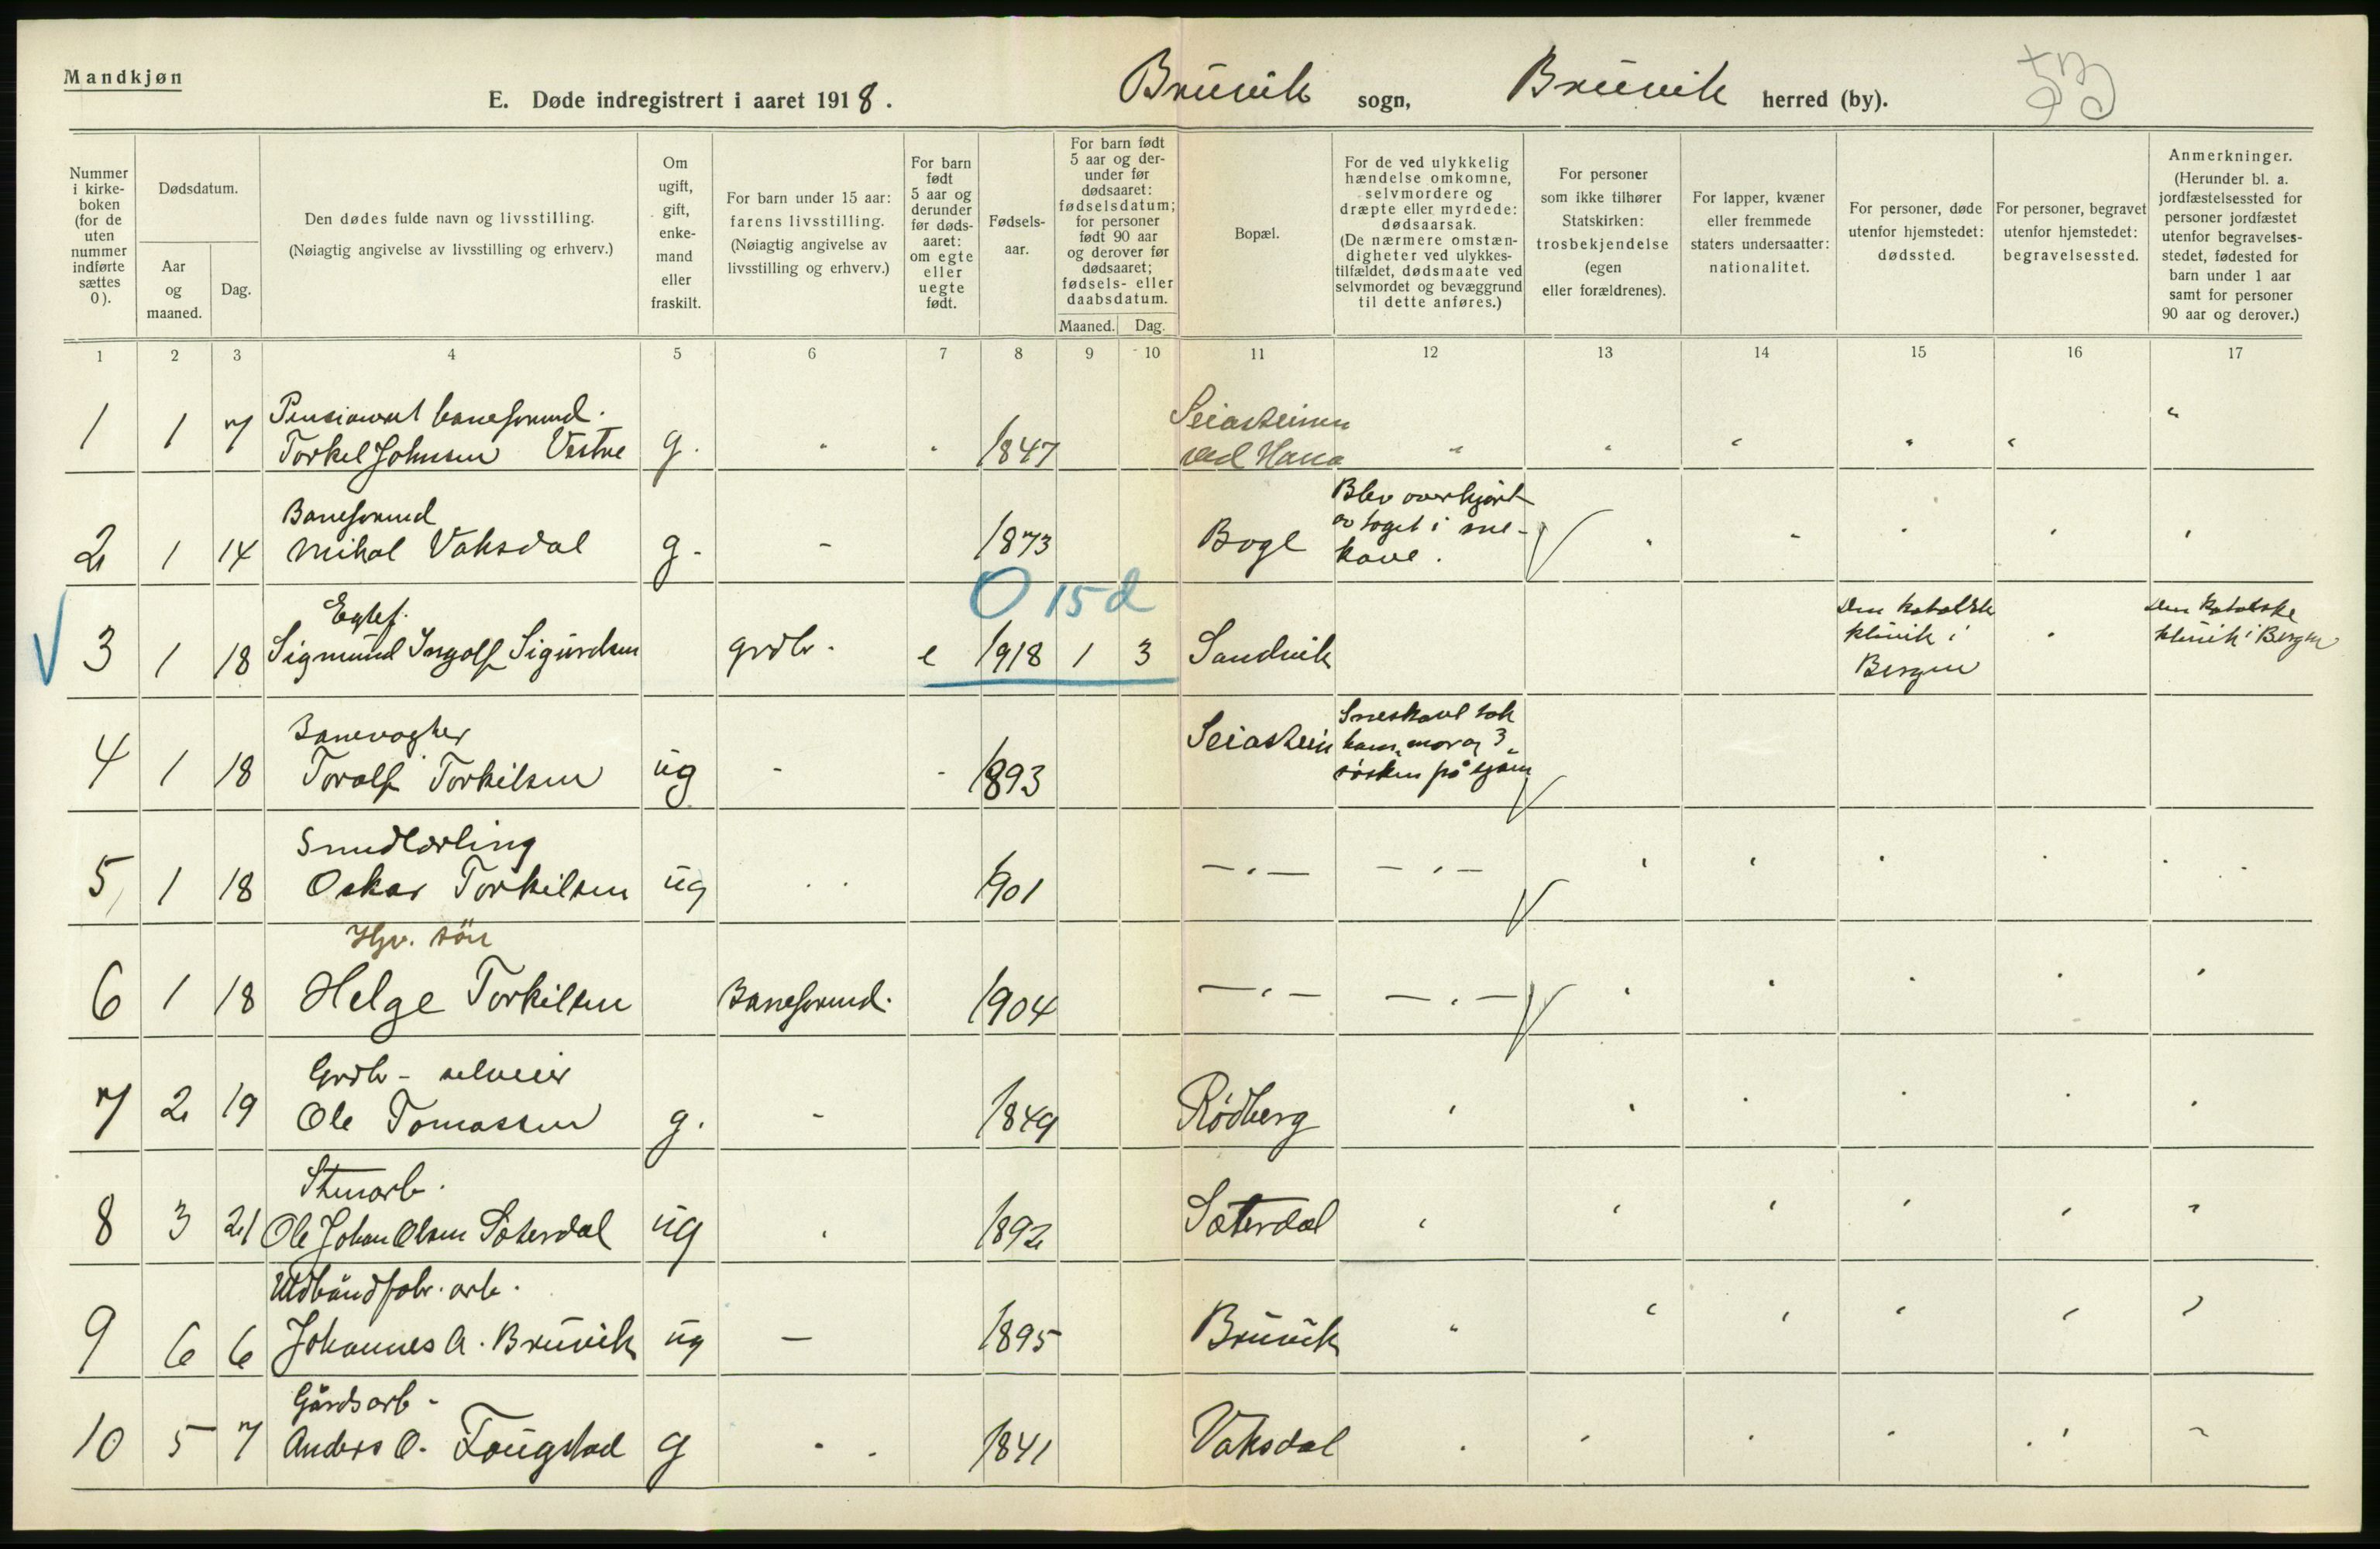 Mandkjøn
E. Døde indregistrert i aaret 1918. Bruvik sogn, Bruvik herred (by). 53
Nummer i kirke-boken (for de uten nummer indførte sættes 0).
Dødsdatum.
Aar og maaned.
Dag.
Den dødes fulde navn og livsstilling.
(Nøiagtig angivelse av livsstilling og erhverv.)
Om ugift, gift, enke-mand eller fraskilt.
For barn under 15 aar: farens livsstilling. (Nøiagtig angivelse av livsstilling og erhverv.)
For barn født 5 aar og derunder før døds-aaret: om egte eller uegte født.
Fødsels-aar.
For barn født 5 aar og der-under før dødsaaret: fødselsdatum; for personer født 90 aar og derover før dødsaaret; fødsels- eller daabsdatum.
Maaned. Dag.
Bopæl.
For de ved ulykkelig hændelse omkomne, selvmordere og dræpte eller myrdede: dødsaarsak. (De nærmere omstæn-digheter ved ulykkes-tilfældet, dødsmaate ved selvmordet og bevæggrund til dette anføres.)
For personer som ikke tilhører Statskirken: trosbekjendelse (egen eller forældrenes).
For lapper, kvæner eller fremmede staters undersaatter: nationalitet.
For personer, døde utenfor hjemstedet: dødssted.
For personer, begravet utenfor hjemstedet: begravelsessted.
Anmerkninger. (Herunder bl. a. jordfæstelsessted for personer jordfæstet utenfor begravelses-stedet, fødested for barn under 1 aar samt for personer 90 aar og derover.)
1 2 3 4 5 6 7 8 9 10 11 12 13 14 15 16 17
Pensionert baneformd.
1 1 7 Torkel Johnsen Vestre g. 1847 ved
Baneformd
2 1 14 Mikal Vaksdal g. - 1873 Boge Blev overkjørt av toget i sne-kave.
O 15 d
Egtef.
3 1 18 Sigmund Ingolf Sigurdsen grdbr. e 1918 1 3 Sandvik Den katolske klinik i Bergen Den katolske klinik i Bergen
Banevogter
4 1 18 Torolf Torkilsen ug - - 1893 Seiastein Sneskavl tok ham, mor og 3 søsken på sjøen
Smedlærling
5 1 18 Oskar Torkilsen ug 1901 — " — — " —
Hjv. søn
6 1 18 Helge Torkilsen Baneformd. 1904 — " — — " —
Grdbr - selveier
7 2 19 Ole Tomassen g. - 1849 Rødberg
Stenarb.
8 3 21 Ole Johan Olsen Sæterdal ug 1892 Sæterdal
Uldbåndfabr. arb.
9 6 6 Johannes A. Bruvik ug — 1895 Bruvik
Gårdsarb -
10 5 7 Anders O. Fougstad g 1841 Vaksdal